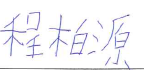 程柏源